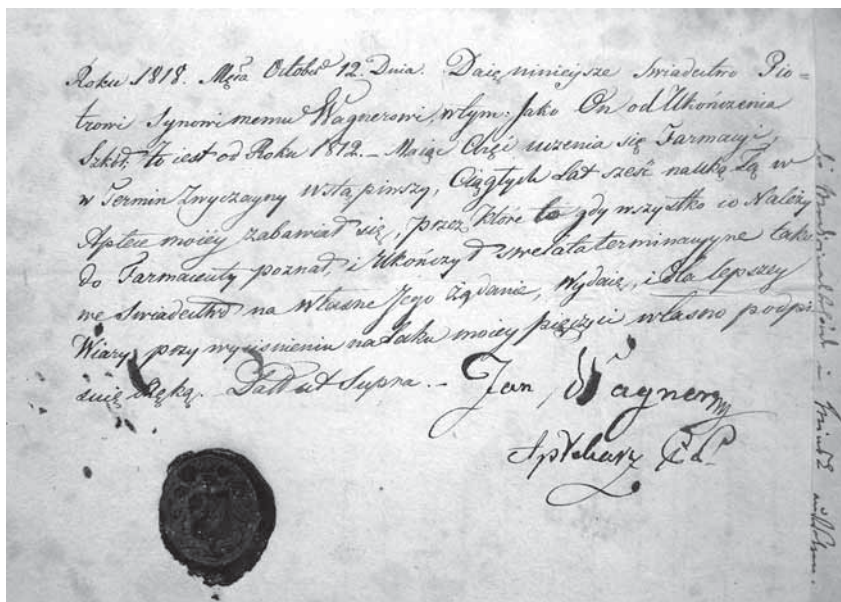 Roku 1818. Męsca Octobrᵈ 12. Dnia. Daię ninieysze Swiadectwo Pio=
trowi Synowi memu Wagnerowi, w tym: Jako On od Ukończenia
Szkół, to iest od Roku 1812. – Maiąc Chęć uczenia się Farmacyi,
w Termin Zwyczayny wstąpiwszy, Ciągłych Lat sześć nauką tą w
Aptece moiéy zabawiał się, przez które to gdy wszystko co Należy
do Farmaceuty poznał, i Ukończył swe lata terminacyyne tako
we Swiadectwo na własne Jego żądanie, wydaię, i dla lepszey
Wiary przy wyciśnieniu na Laku moiey pieczęci własno podpi
suię Ręką. Datt ut Supra. –
Jan Wagner
Aptekarz